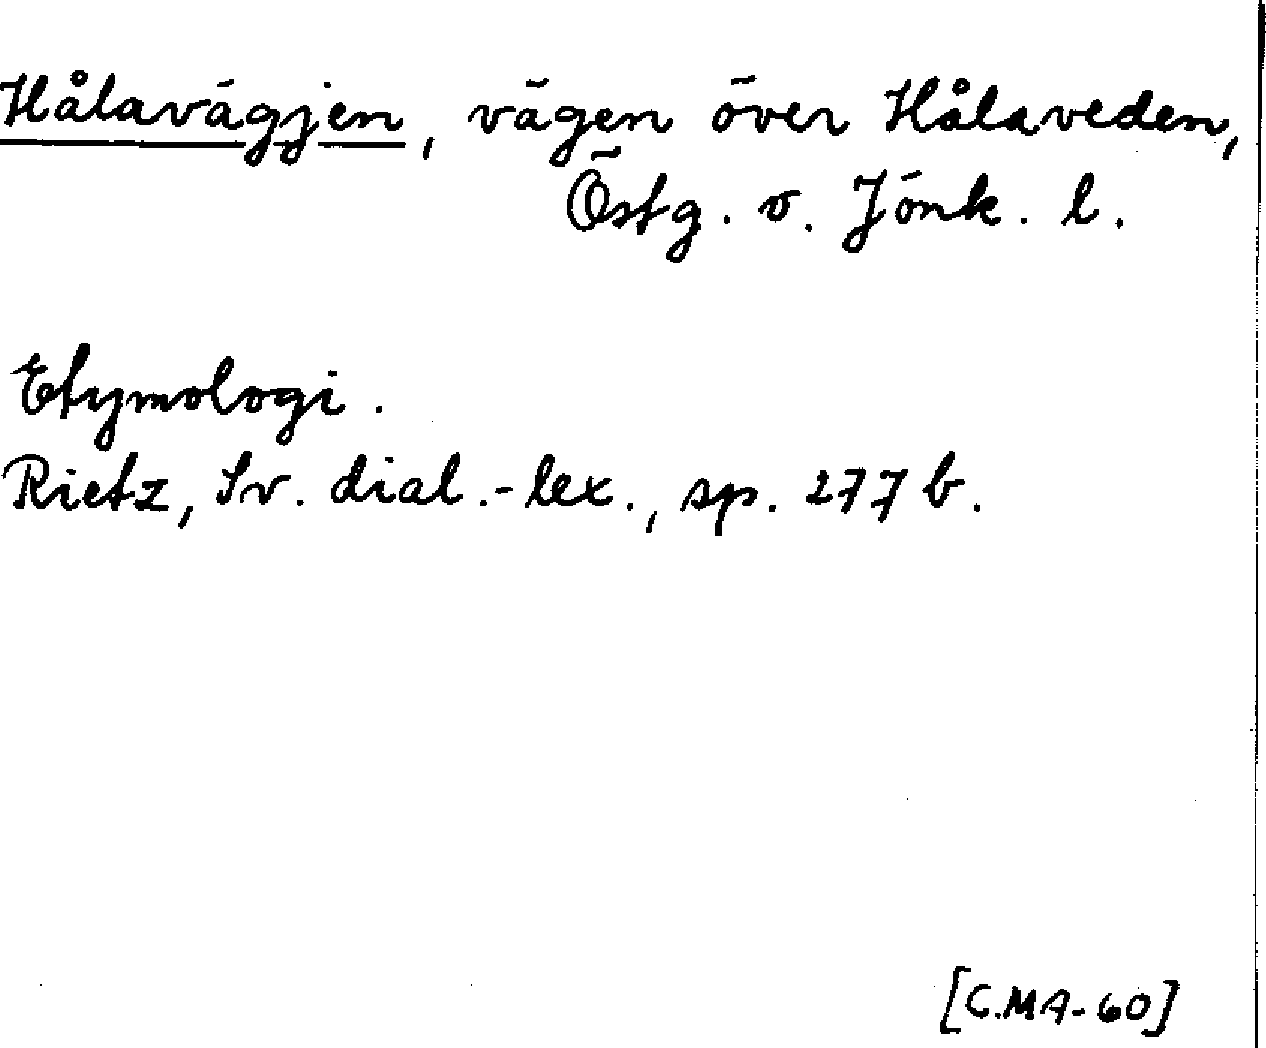 Hålavägjen, vägen över Hålaveden,
Östg. o. Jönk. l.
Etymologi.
Rietz, Sv. dial.-lex., sp. 277 b.
[C.MA-60]